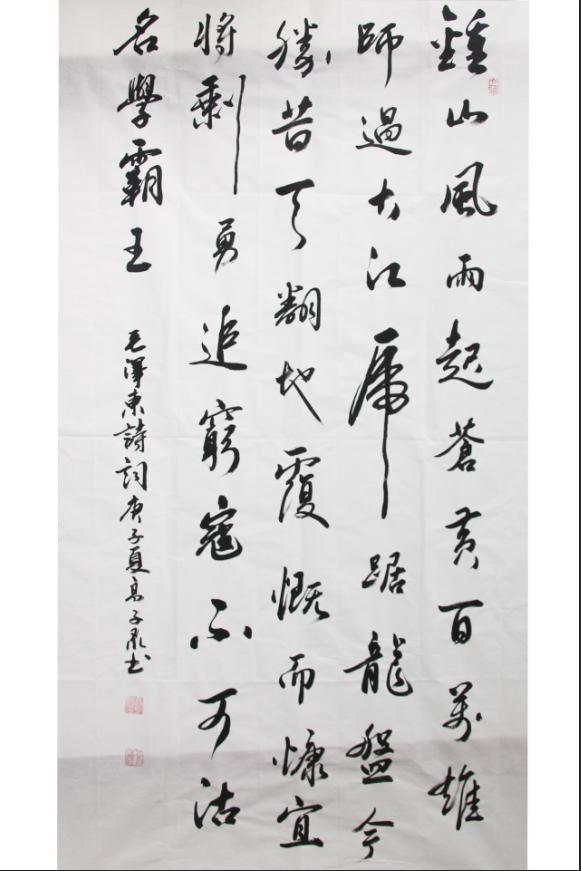 鍾山風雨起蒼黃百萬雄
師過大江虎踞龍盤今
勝昔天翻地覆慨而慷宜
將剩勇追窮寇不可沽
名學霸王 毛澤東詩詞庚子夏高子书